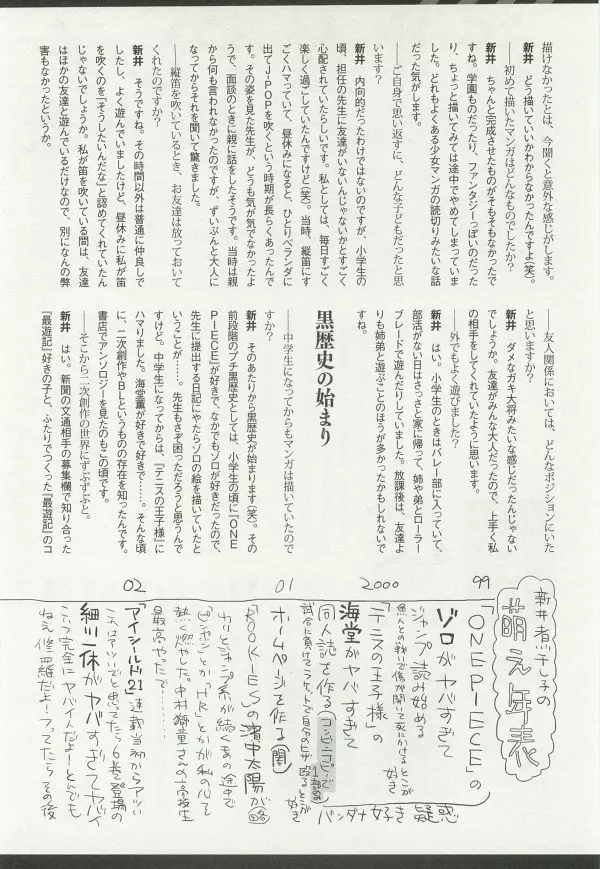 描けなかったとは、今聞くと意外な感じがします。
新井　どう描いていいかわからなかったんですよ(笑)。
――初めて描いたマンガはどんなものでしたか？
新井　ちゃんと完成させたものがそもそもなかったで
すね。学園ものだったり、ファンタジーっぽいのだった
り、ちょっと描いてみては途中でやめてしまっていま
した。どれもよくある少女マンガの読切りみたいな話
だった気がします。
――ご自身で思い返すに、どんな子どもだったと思
います？
新井　内向的だったわけではないのですが、小学生の
頃、担任の先生に友達がいないんじゃないかとすごく
心配されていたらしいです。私としては、毎日すごく
楽しく過ごしていたんですけど(笑)。当時、縦笛にす
ごくハマっていて、昼休みになると、ひとりベランダに
出てJ-POPを吹くという時期が長らくあったんで
す。その姿を見た先生が、どうも気が気でなかったよ
うで、面談のときに親に話をしたそうです。当時は親
から何も言われなかったのですが、ずいぶんと大人に
なってからそれを聞いて驚きました。
――縦笛を吹いているとき、お友達は放っておいて
くれたのですか？
新井　そうですね。その時間以外は普通に仲良しで
したし、よく遊んでいましたけど、昼休みに私が笛
を吹くのを「そうしたいんだな」と認めてくれていたん
じゃないでしょうか。私が笛を吹いている間は、友達
はほかの友達と遊んでいるだけなので、別になんの弊
害もなかったというか。
――友人関係においては、どんなポジションにいた
と思いますか？
新井　ダメなガキ大将みたいな感じだったんじゃない
でしょうか。友達がみんな大人だったので、上手く私
の相手をしてくれていたように思います。
――外でもよく遊びました？
新井　はい。小学生のときはバレー部に入っていて、
部活がない日はさっさと家に帰って、姉や弟とローラー
ブレードで遊んだりしていました。放課後は、友達よ
りも姉弟と遊ぶことのほうが多かったかもしれないで
すね。
黒歴史の始まり
――中学生になってからもマンガは描いていたので
すか？
新井　そのあたりから黒歴史が始まります(笑)。その
前段階のプチ黒歴史としては、小学生の頃に『ONE
PIECE』が好きで、なかでもゾロが好きだったので、
先生に提出する日記にやたらゾロの絵を描いていたと
いうことが……。先生もさぞ困っただろうと思うんで
すけど。中学生になってからは、『テニスの王子様』に
ハマりました。海堂薫が好きで好きで……。そんな頃
に、二次創作やBLというものの存在を知ったんです。
書店でアンソロジーを見たのもこの頃です。
――そこから二次創作の世界にずぶずぶと。
新井　はい。新聞の文通相手の募集欄で知り合った
『最遊記』好きの子と、ふたりでつくった『最遊記』のコ
新井煮干し子の
萌え年表
99
「ONEPIECE」の
ゾロがヤバすぎて
ジャンプ読み始める
魚人との戦いで傷が開いて死にかけるとこが
好き
2000
「テニスの王子様」の
海堂がヤバすぎて
同人誌を作る(コンビニコピーで
1部のみ
試合に負けてラケットで自分のヒザ殴るとこが
好き
バンダナ好き疑惑
01
ホームページを作る(閉)
「ROOKIES」の濱中太陽が(略)
わりとジャンプ系が続くあの途中で
ピンポンとか「HR」とかが私の心を
熱く燃やした。中村獅童さんの高校生
最高やったで…
02
「アイシールド21」連載当初からアツい
これはアツいでと思ってたら6巻で登場の
細川一休がヤバすぎてヤバイ
こいつ完全にヤバイんだよ！とんでも
ねえ修羅だよ！つってたらその後